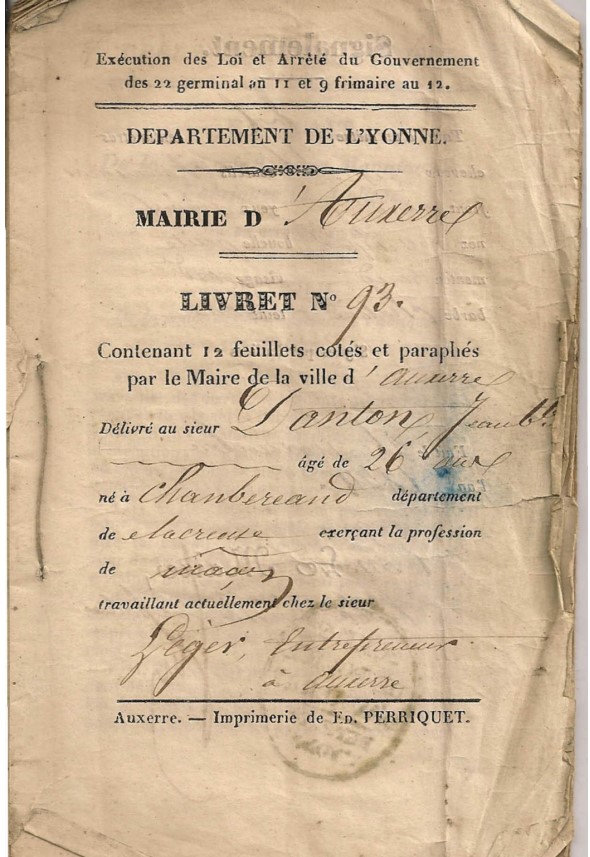 Exécution des Loi et Arrêté du Gouvernement
des 22 germinal an 11 et 9 frimaire au 12.
DEPARTEMENT DE L'YONNE.
MAIRIE D'Auxerre
LIVRET No 93.
Contenant 12 feuillets cotés et paraphés
par le Maire de la ville d'auxerre
Délivré au sieur Danton Jean Bte
âgé de 26 ans
né à Chanbereaud département
de elacreuse exerçant la profession
de maçon
travaillant actuellement chez le sieur
Léger, Entrepreneur
à auxerre
Auxerre. — Imprimerie de ED. PERRIQUET.